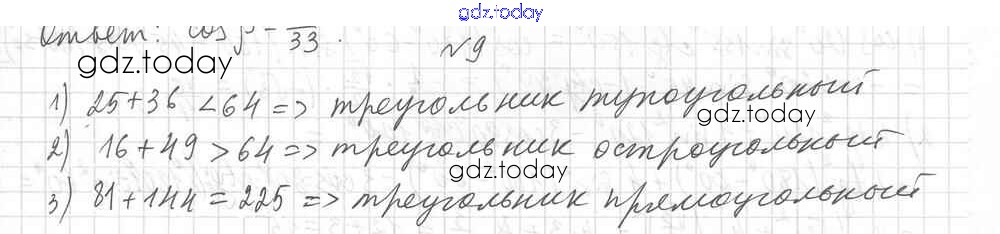 gdz.today
Ответ: cos β = /33.
№9
gdz.today
1) 25+36 <64 => треугольник тупоугольный
gdz.today
2) 16+49 >64 => треугольник остроугольный
gdz.today
3) 81+144 = 225 => треугольник прямоугольный